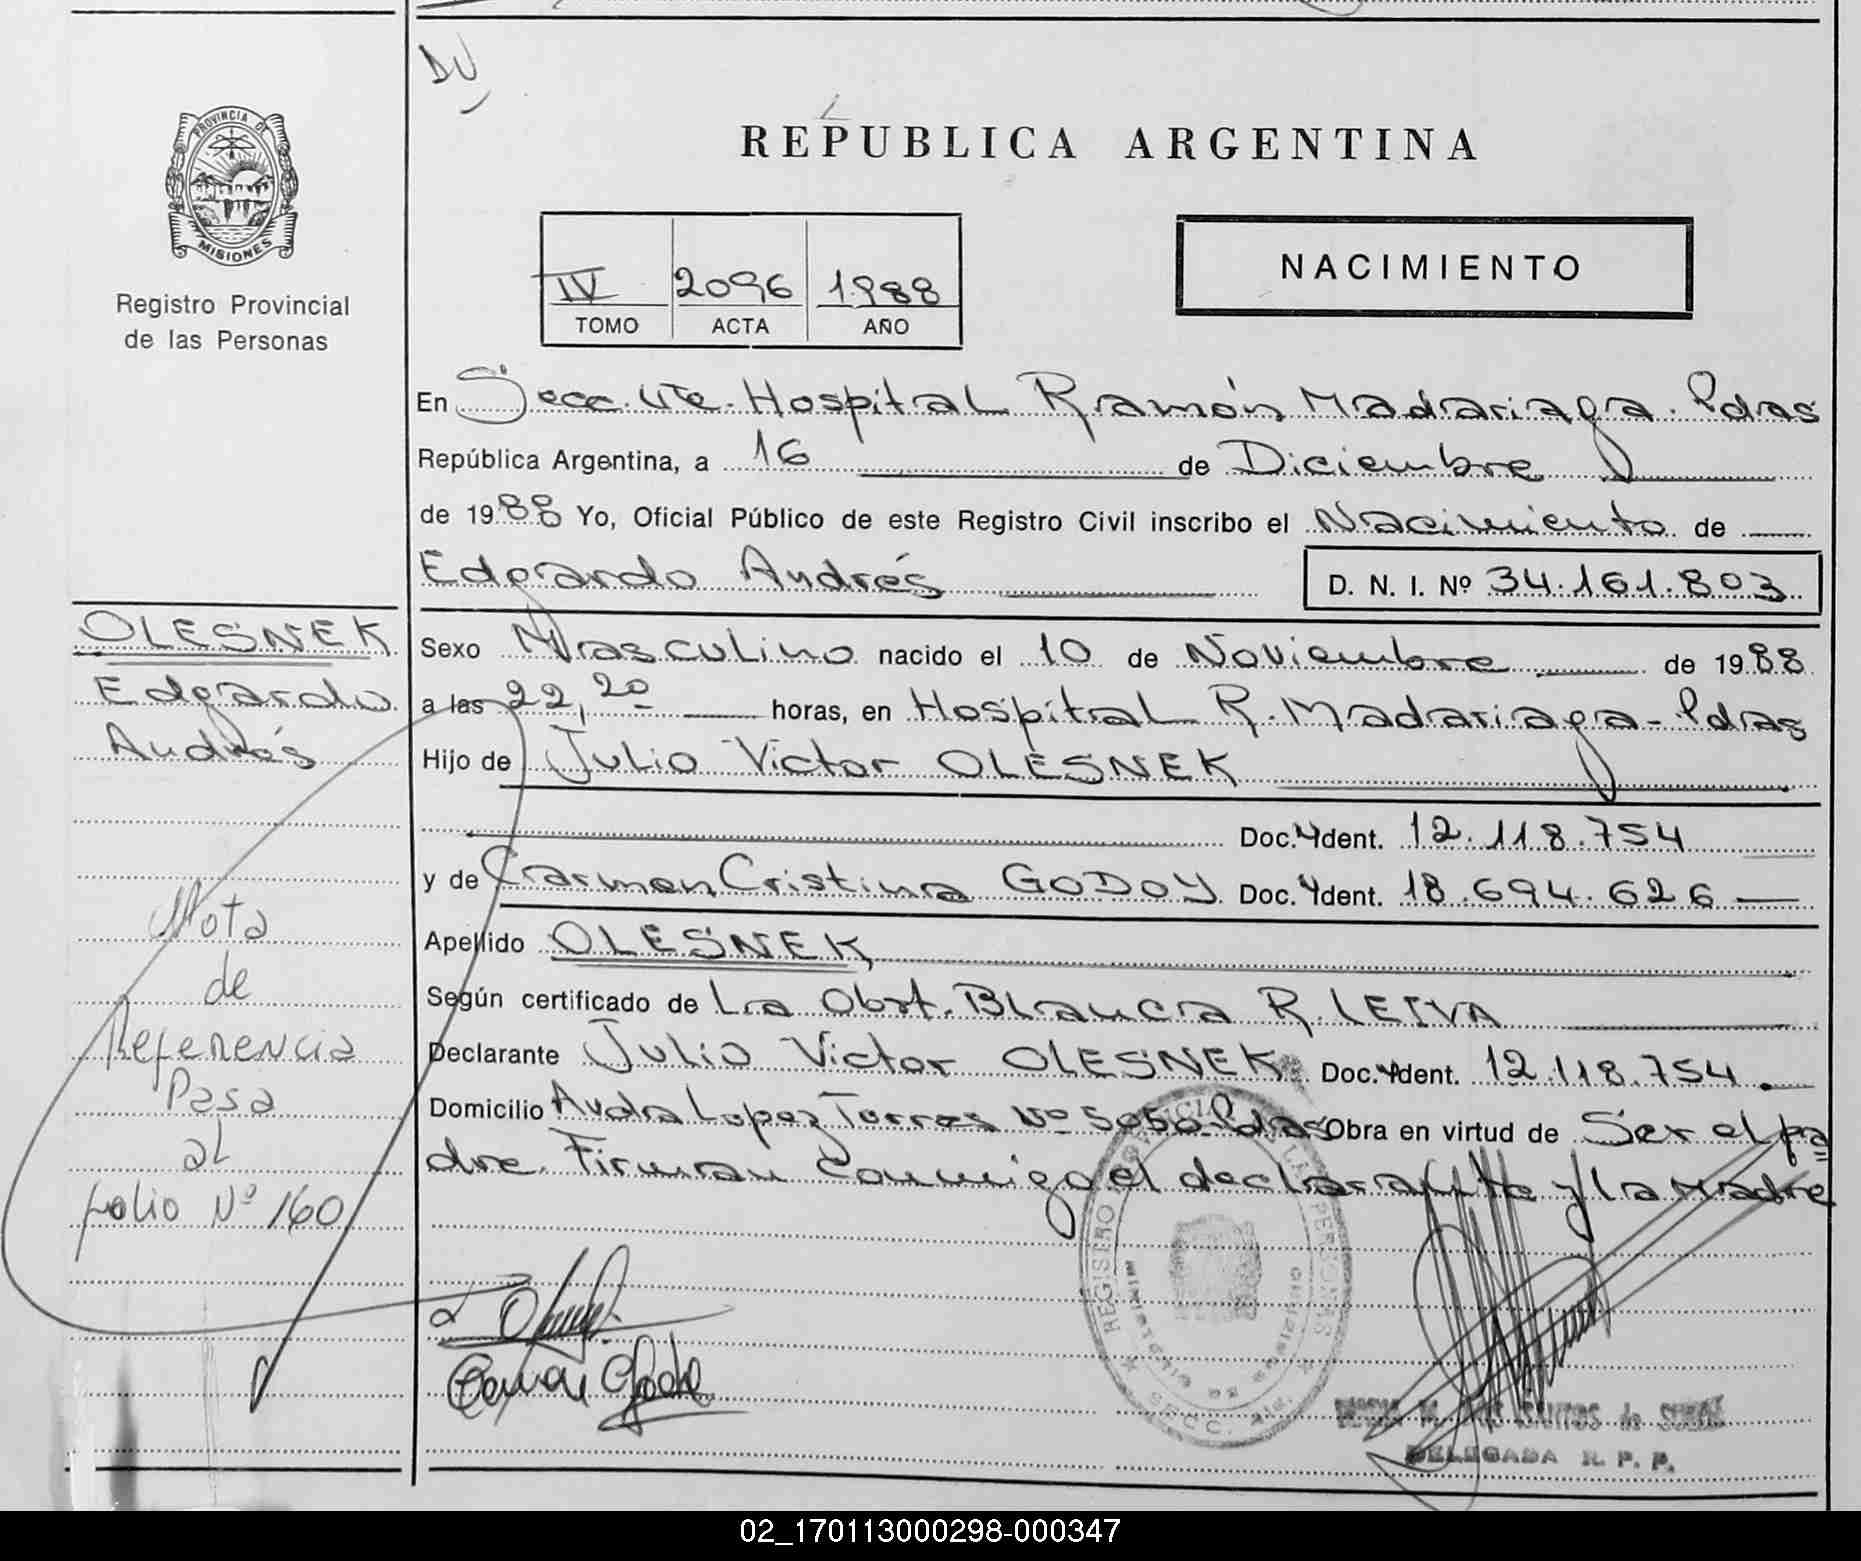 DU
PROVINCIA DE
MISIONES
Registro Provincial
de las Personas
REPUBLICA ARGENTINA
IV 2096 1988
TOMO ACTA AÑO
NACIMIENTO
En Secc. Hospital Ramón Madariaga. Pdas
República Argentina, a 16 de Diciembre
de 1988 Yo, Oficial Público de este Registro Civil inscribo el Nacimiento de
Edgardo Andrés
D. N. I. Nº 34.161.803
Sexo Masculino nacido el 10 de Noviembre de 1988
a las 22,20 horas, en Hospital R. Madariaga - Pdas
Hijo de Julio Victor OLESNEK
Doc. Ydent. 12.118.754
y de Carmen Cristina GODOY Doc. Ydent. 18.694.626
Apellido OLESNEK
Según certificado de La Obst. Blanca R. LEIVA
Declarante Julio Victor OLESNEK Doc. Ydent. 12.118.754.
Domicilio Avda Lopez Torres Nº 5050 - Pdas Obra en virtud de Ser el pa
dre. Firman conmigo el declarante y la madre
OLESNEK
Edgardo
Andrés
Nota
de
Referencia
Pasa
al
folio Nº 160
REGISTRO PROVINCIAL LAS PERSONAS
SECC.
SANTOS de
DELEGADA R. P. P.
02_170113000298-000347